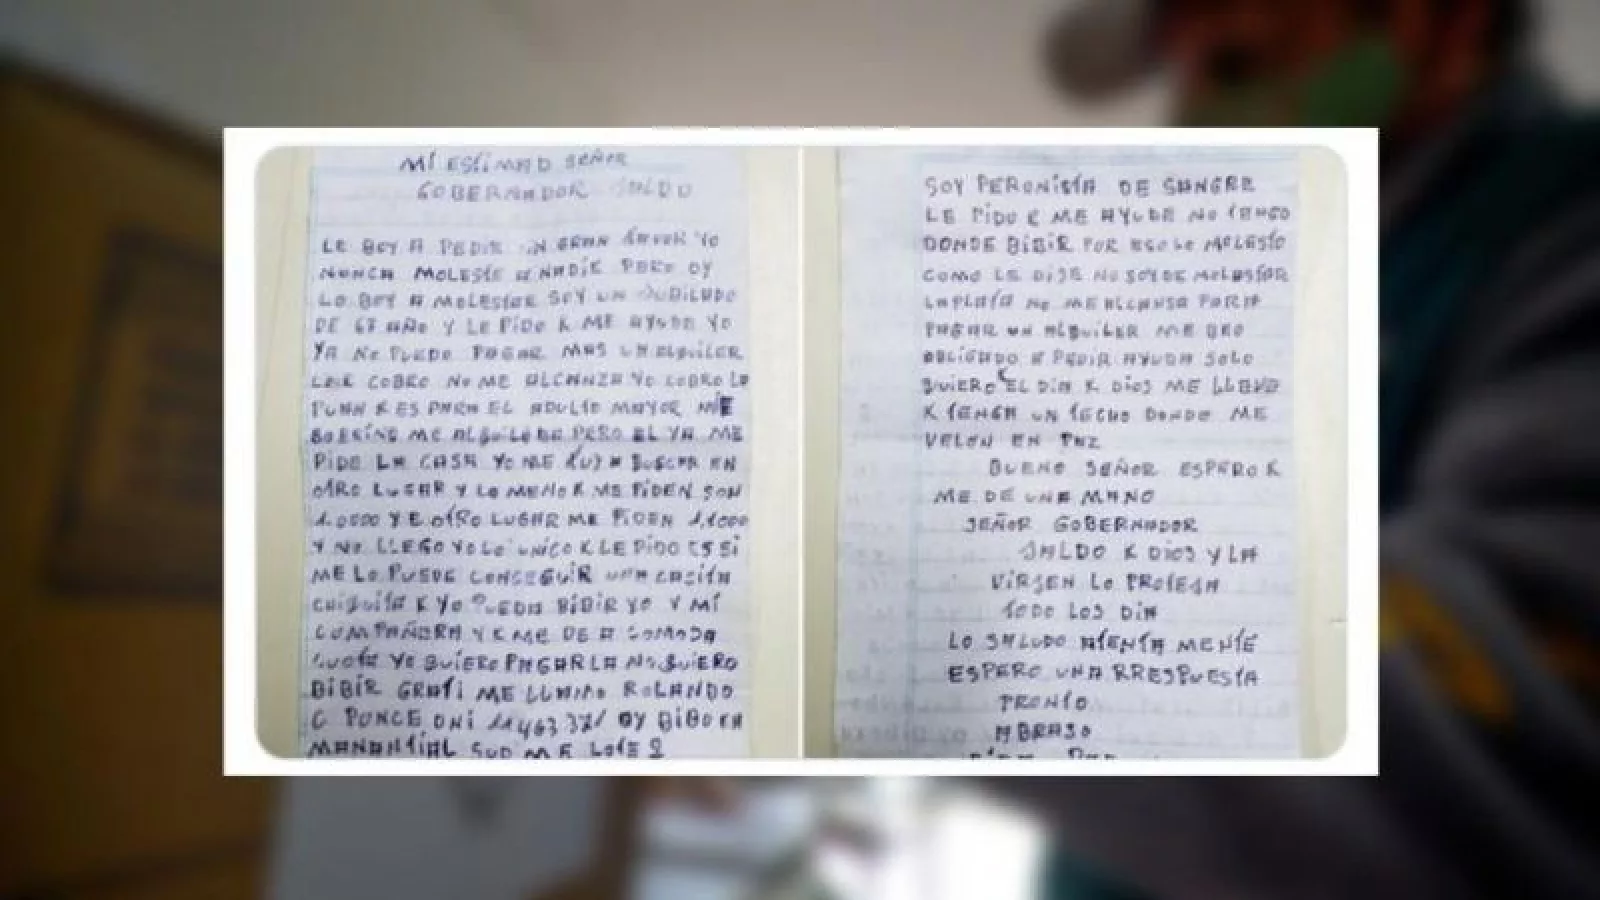 MI ESTIMAD SEÑOR
GOBERNADOR JALDO
LE BOY A PEDIR UN GRAN FAVOR YO
NUNCA MOLESTE A NADIE PERO OY
LO BOY A MOLESTAR SOY UN JUBILADO
DE 67 AÑO Y LE PIDO K ME AYUDE YO
YA NO PUEDO PAGAR MAS UN ALQUILER
COBRO NO ME ALCANZA YO COBRO LA
PUAN K ES PARA EL ADULTO MAYOR MIE
SOBRINO ME ALQUILABA PERO EL YA ME
PIDE LA CASA YO ME FUI A BUSCAR EN
OTRO LUGAR Y LO MENO K ME PIDEN SON
10000 Y E OTRO LUGAR ME PIDEN 11000
Y NO LLEGO YO LO UNICO K LE PIDO ES SI
ME LO PUEDE CONSEGUIR UNA CASITA
CHIQUITA K YO PUEDA BIBIR YO Y MI
COMPAÑERA Y K ME DE A COMODA
CUOTA YO QUIERO PAGARLA NO QUIERO
BIBIR GRATI ME LLAMO ROLANDO
C PONCE DNI OY BIBO EN
MANANTIAL SUD LOTE
SOY PERONISTA DE SANGRE
LE PIDO K ME AYUDE NO TENGO
DONDE BIBIR POR ESO LO MOLESTO
COMO LE DIJE NO SOY DE MOLESTAR
LA PLATA NO ME ALCANSA PARA
PAGAR UN ALQUILER ME BEO
OBLIGADO A PEDIR AYUDA SOLO
QUIERO EL DIA K DIOS ME LLEVE
K TENGA UN TECHO DONDE ME
VELEN EN PAZ
BUENO SEÑOR ESPERO K
ME DE UNA MANO
SEÑOR GOBERNADOR
JALDO K DIOS Y LA
VIRJEN LO PROTEJA
TODO LOS DIA
LO SALUDO ATENTA MENTE
ESPERO UNA RRESPUESTA
PRONTO
ABRASO